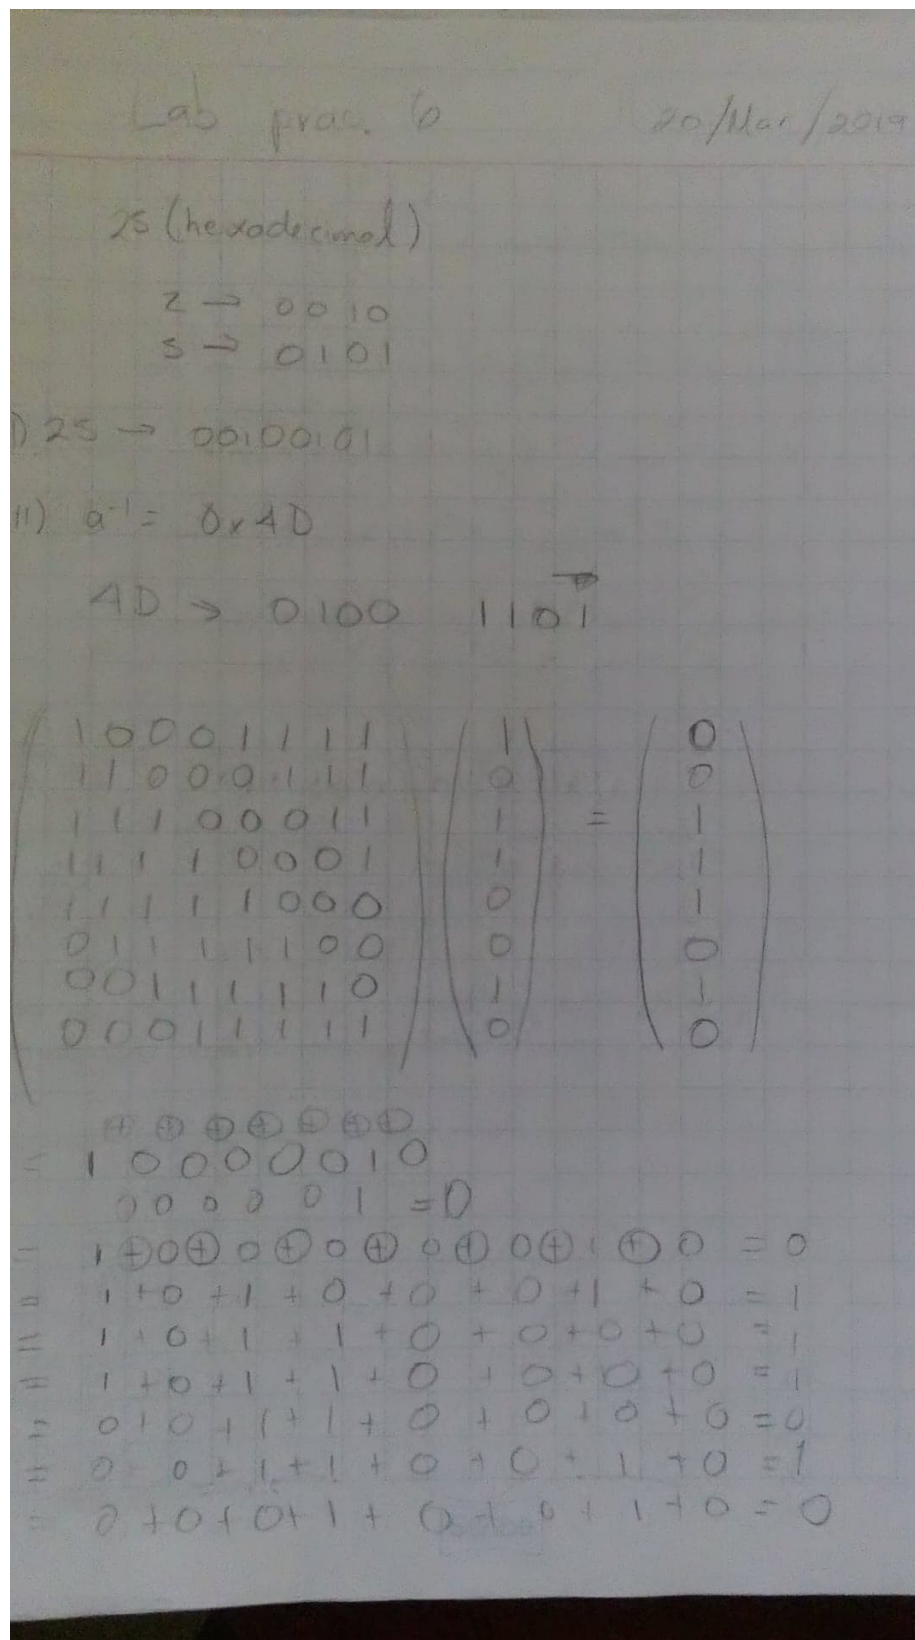 Lab prac. 6 20/Mar/2019
25 (hexadecimal)
2 → 0010
5 → 0101
I) 25 → 00100101
II) a⁻¹ = 0x4D
4D → 0100 1101
1 0 0 0 1 1 1 1 1 0
1 1 0 0 0 1 1 1 0 0
1 1 1 0 0 0 1 1 1 = 1
1 1 1 1 0 0 0 1 1 1
1 1 1 1 1 0 0 0 0 1
0 1 1 1 1 1 0 0 0 0
0 0 1 1 1 1 1 0 1 1
0 0 0 1 1 1 1 1 0 0
⊕ ⊕ ⊕ ⊕ ⊕ ⊕ ⊕
= 1 0 0 0 0 0 1 0
0 0 0 0 0 1 = 0
= 1 ⊕ 0 ⊕ 0 ⊕ 0 ⊕ 0 ⊕ 0 ⊕ 1 ⊕ 0 = 0
= 1 + 0 + 1 + 0 + 0 + 0 + 1 + 0 = 1
= 1 + 0 + 1 + 1 + 0 + 0 + 0 + 0 = 1
= 1 + 0 + 1 + 1 + 0 + 0 + 0 + 0 = 1
= 0 + 0 + 1 + 1 + 0 + 0 + 0 + 0 = 0
= 0 0 + 1 + 1 + 0 + 0 + 1 + 0 = 1
= 0 + 0 + 0 + 1 + 0 + 0 + 1 + 0 = 0